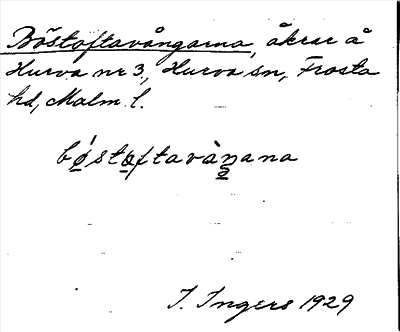 Böstoftavångarna, åkrar å
Hurva nr 3, Hurva sn, Frosta
hd, Malm. l.
bǿstoftavàŋana
I. Ingers 1929